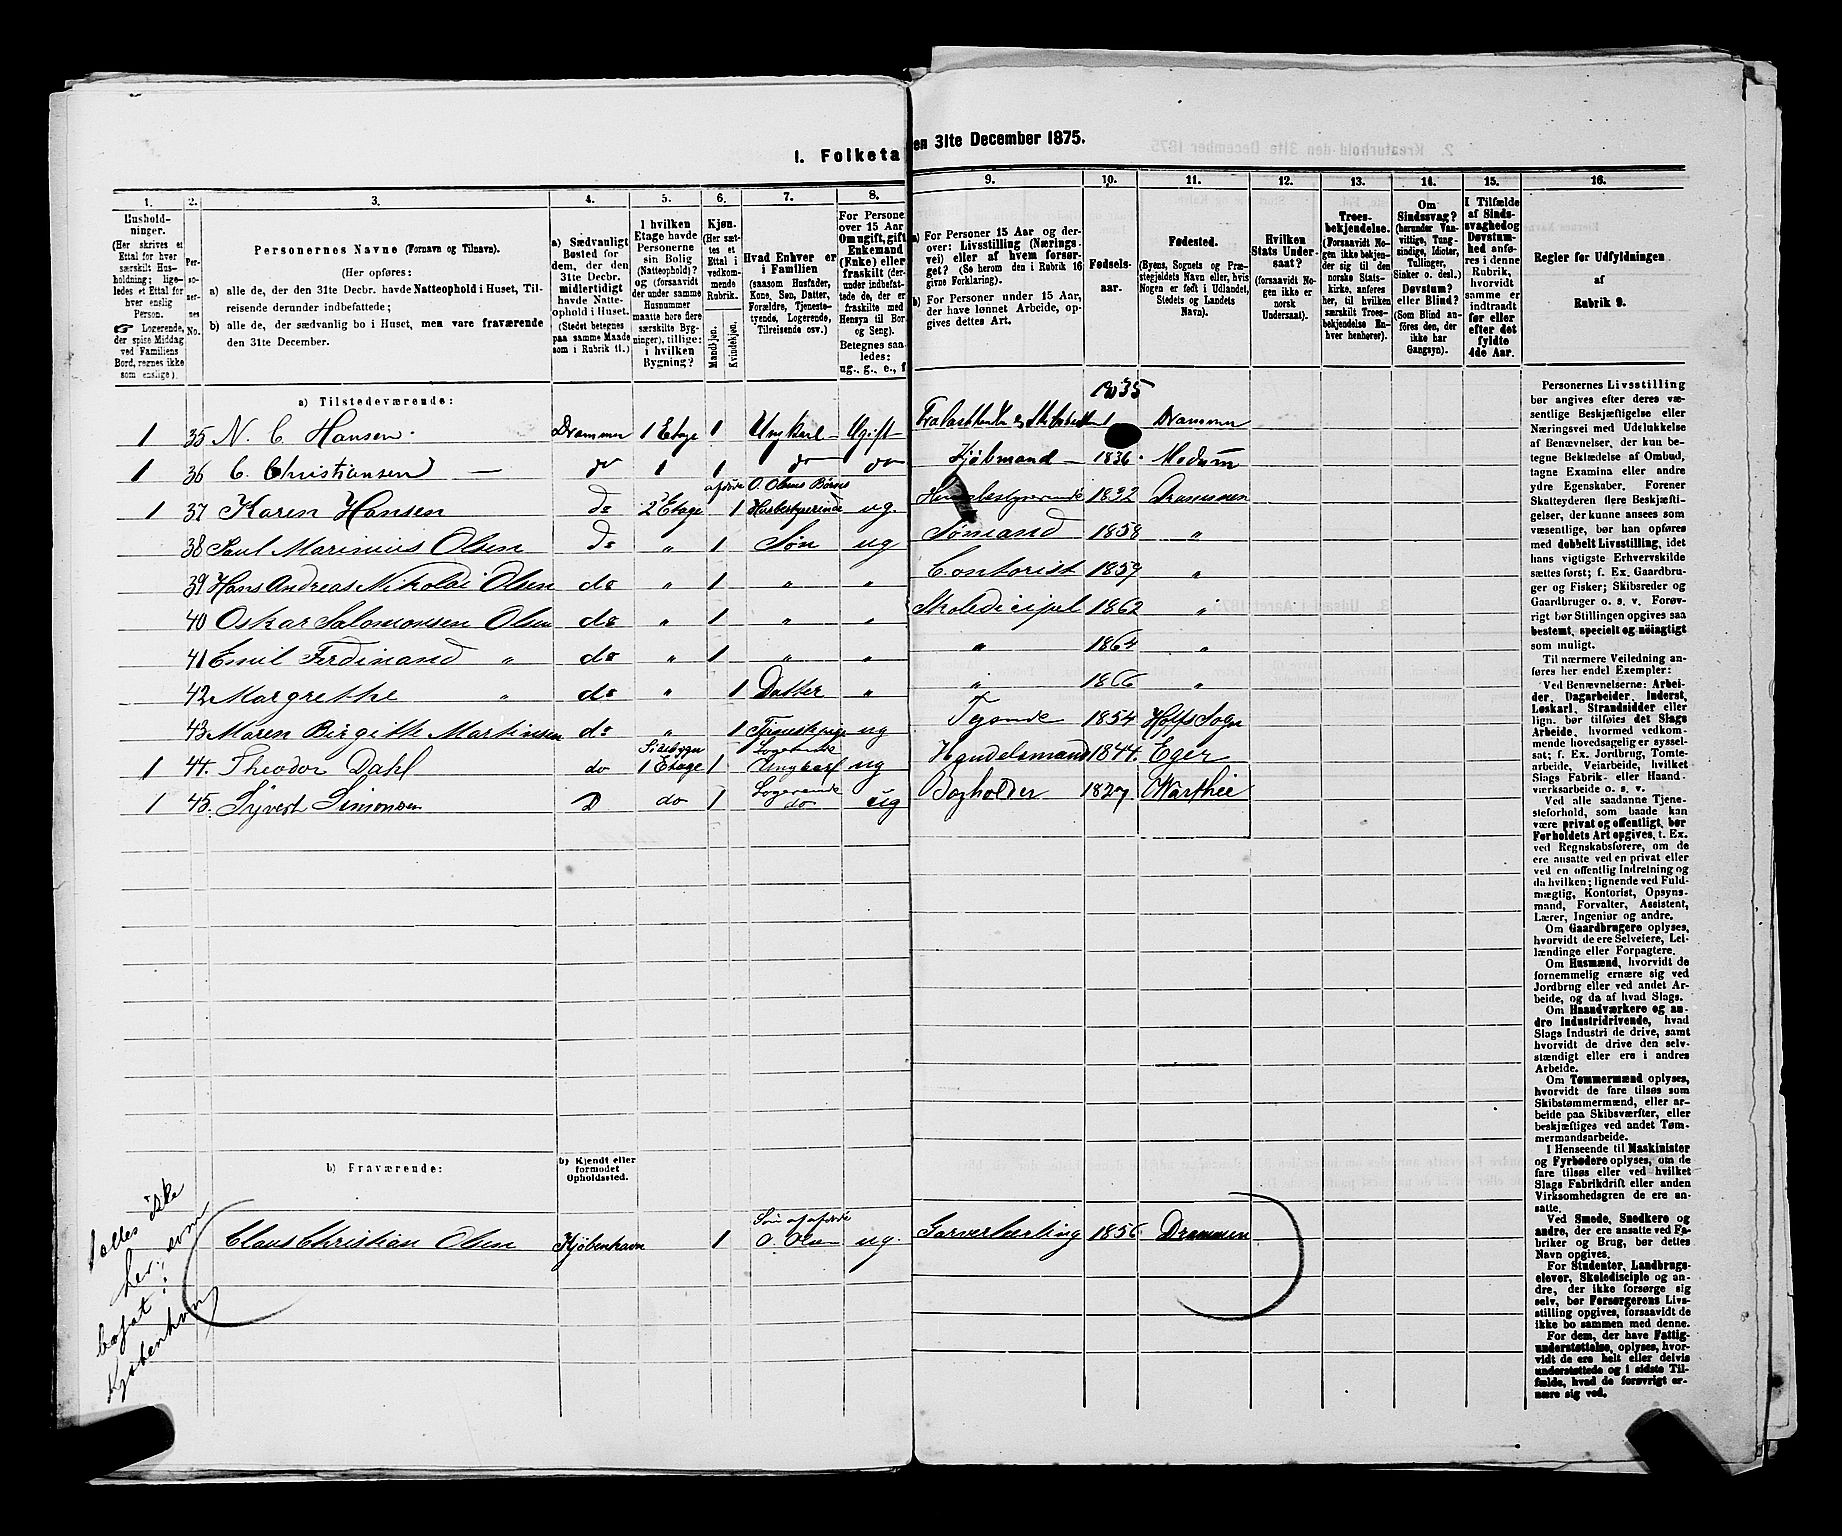 1. Folketa en 31te December 1875.
1. 2. 3. 4. 5. 6. 7. 8. 9. 10. 11. 12. 13. 14. 15. 16.
Husholdninger. (Her skrives et Ettal for hver særskilt Husholdning; ligeledes et Ettal for hver enslig Person. ☞ Logerende, der spise Middag ved Familiens Bord, regnes ikke som enslige).
Personernes No.
Personernes Navne (Fornavn og Tilnavn).
(Her opføres:
a) alle de, der den 31te Decbr. havde Natteophold i Huset, Tilreisende derunder indbefattede;
b) alle de, der sædvanlig bo i Huset, men vare fraværende den 31te December.
a) Sædvanligt Bosted for dem, der den 31te Decbr. midlertidigt havde Natteophold i Huset. (Stedet betegnes paa samme Maade som i Rubrik 11.)
I hvilken Etage havde Personerne sin Bolig (Natteophold)? og (forsaavidt der under samme Husnummer maatte høre flere særskilte Bygninger), tillige: i hvilken Bygning?
Kjøn. (Her sættes et Ettal i vedkommende Rubrik. Mandkjøn. Kvindekjøn.
Hvad Enhver er i Familien (saasom Husfader, Kone, Søn, Datter, Forældre, Tjenestetyende, Logerende, Tilreisende osv.)
For Persone over 15 Aar Om ugift, gift Enkemand (Enke) eller fraskilt (derindbefattede de, der er fraskilte med Hensyn til Bor og Seng). Betegnes saaledes: ug., g., e., f
a) For Personer 15 Aar og derover: Livsstilling (Næringsvei) eller af hvem forsørget? (Se herom den i Rubrik 16 givne Forklaring).
b) For Personer under 15 Aar, der have lønnet Arbeide, opgives dettes Art.
Fødselsaar.
Fødested. (Byens, Sognets og Præstegjeldets Navn eller, hvis Nogen er født i Udlandet, Stedets og Landets Navn).
Hvilken Stats Undersaat? (forsaavidt Nogen ikke er norsk Undersaat).
Troesbekjendelse. (Forsaavidt Nogen ikke bekjender sig til den norske Statskirke, anføres her, til hvilken særskilt Troesbekjendelse Enhver henhører).
Om Sindssvag? (herunder Vanvittige, Tungsindige, Idioter, Tullinger, Sinker o. desl.) Døvstum? eller Blind? (Som Blind anføres den, der ikke har Gangsyn).
I Tilfælde af Sindssvaghed og Døvstumhed anføres i denne Rubrik, hvorvidt samme er indtraadt før eller efter det fyldte 4de Aar.
Regler for Udfyldningen af Rubrik 9.
a) Tilstedeværende:
1 35 N. C. Hansen Drammen 1 Etage 1 Ungkarl Ugift 1835 Drammen
1 36 C. Christiansen do 1 1 do do Kjøbmand 1836 Modum
1 37 Karen Hansen do 2 Etage 1 afdøde O. Olsens Børns Husbestyrerinde ug. Husbestyrerinde 1832 Drammen
38 Paul Marinius Olsen do " 1 Søn ug Sømand 1858 "
39 Hans Andreas Nikolai Olsen do " 1 " " Contorist 1859 "
40 Oskar Salomonsen Olsen do " 1 " " Skoledicipel 1862 "
41 Emil Ferdinand " do " 1 " " " 1864 "
42 Margrethe " do " 1 Datter " " 1866 "
43 Maren Birgitte Martinsen do " 1 Tjenestepige ug Tyende 1854 Hoffs Sogn
1 44. Theodor Dahl do Sidebygn 1 Etage 1 Logerende Ungkarl ug Handelsmand 1844. Eger
1 45. Syvert Simonsen D do 1 Logerende do ug Bogholder 1827
b) Fraværende:
b) Kjendt eller formodet Opholdssted.
Claus Christian Olsen Kjøbenhavn 1 Søn af afdøde O. Olsen ug. Garverlærling 1856 Drammen
Tælles ikke
her, som
bosat i
Kjøbenhavn
Personernes Livsstilling
bør angives efter deres væ-
sentlige Beskjæftigelse eller
Næringsvei med Udelukkelse
af Benævnelser, der kun be-
tegne Beklædelse af Ombud,
tagne Examina eller andre
ydre Egenskaber. Forener
Skatteyderen flere Beskjæfti-
gelser, der kunne ansees som
væsentlige, bør han opføres
med dobbelt Livsstilling, idet
hans vigtigste Erhvervskilde
sættes først; f. Ex. Gaardbru-
ger og Fisker; Skibsreder og
Gaardbruger o. s. v. Forøv-
rigt bør Stillingen opgives saa
bestemt, specielt og nøiagtigt
som muligt.
Til nærmere Veiledning an-
føres her endel Exempler:
Ved Benævnelserne: Arbei-
der, Dagarbeider, Inderst,
Løskarl, Strandsidder eller
lign. bør tilføies det Slags
Arbeide, hvormed vedkom-
mende hovedsagelig er syssel-
sat; f. Ex. Jordbrug, Tomte-
arbeide, Veiarbeide, hvilket
Slags Fabrik- eller Haand-
værksarbeide o. s. v.
Ved alle saadanne Tjene-
steforhold, som baade kan
være privat og offentligt, bør
Forholdets Art opgives, t. Ex.
ved Regnskabsførere, om de
ere ansatte ved en privat eller
ved en offentlig Indretning og
da hvilken; lignende ved Fuld-
mægtig, Kontorist, Opsyns-
mand, Forvalter, Assistent,
Lærer, Ingeniør og andre.
Om Gaardbrugere oplyses,
hvorvidt de ere Selveiere, Lei-
lændinge eller Forpagtere.
Om Husmænd, hvorvidt de
fornemmelig ernære sig ved
Jordbrug eller ved andet Ar-
beide, og da af hvad Slags.
Om Haandværkere og an-
dre Industridrivende, hvad
Slags Industri de drive, samt
hvorvidt de drive den selv-
stændigt eller ere i andres
Arbeide.
Om Tømmermænd oplyses,
hvorvidt de fare tilsøs som
Skibstømmermænd, eller ar-
beide paa Skibsværfter, eller
beskjæftiges ved andet Tøm-
mermandsarbeide.
I Henseende til Maskinister
og Fyrbødere oplyses, om de
fare tilsøs eller ved hvilket
Slags Fabrikdrift eller anden
Virksomhedsgren de ere an-
satte.
Ved Smede, Snedkere og
andre, der ere ansatte ved Fa-
briker og Brug, bør dettes
Navn opgives.
For Studenter, Landbrugs-
elever, Skoledisciple og an-
dre, der ikke forsørge sig
selv, bør Forsørgerens Livs-
stilling opgives, forsaavidt de
ikke bo sammen med denne.
For dem, der have Fattig-
understøttelse, oplyses, hvor-
vidt de ere helt eller delvis
understøttede og i sidste Til-
fælde, hvad de forøvrigt er-
nære sig ved.